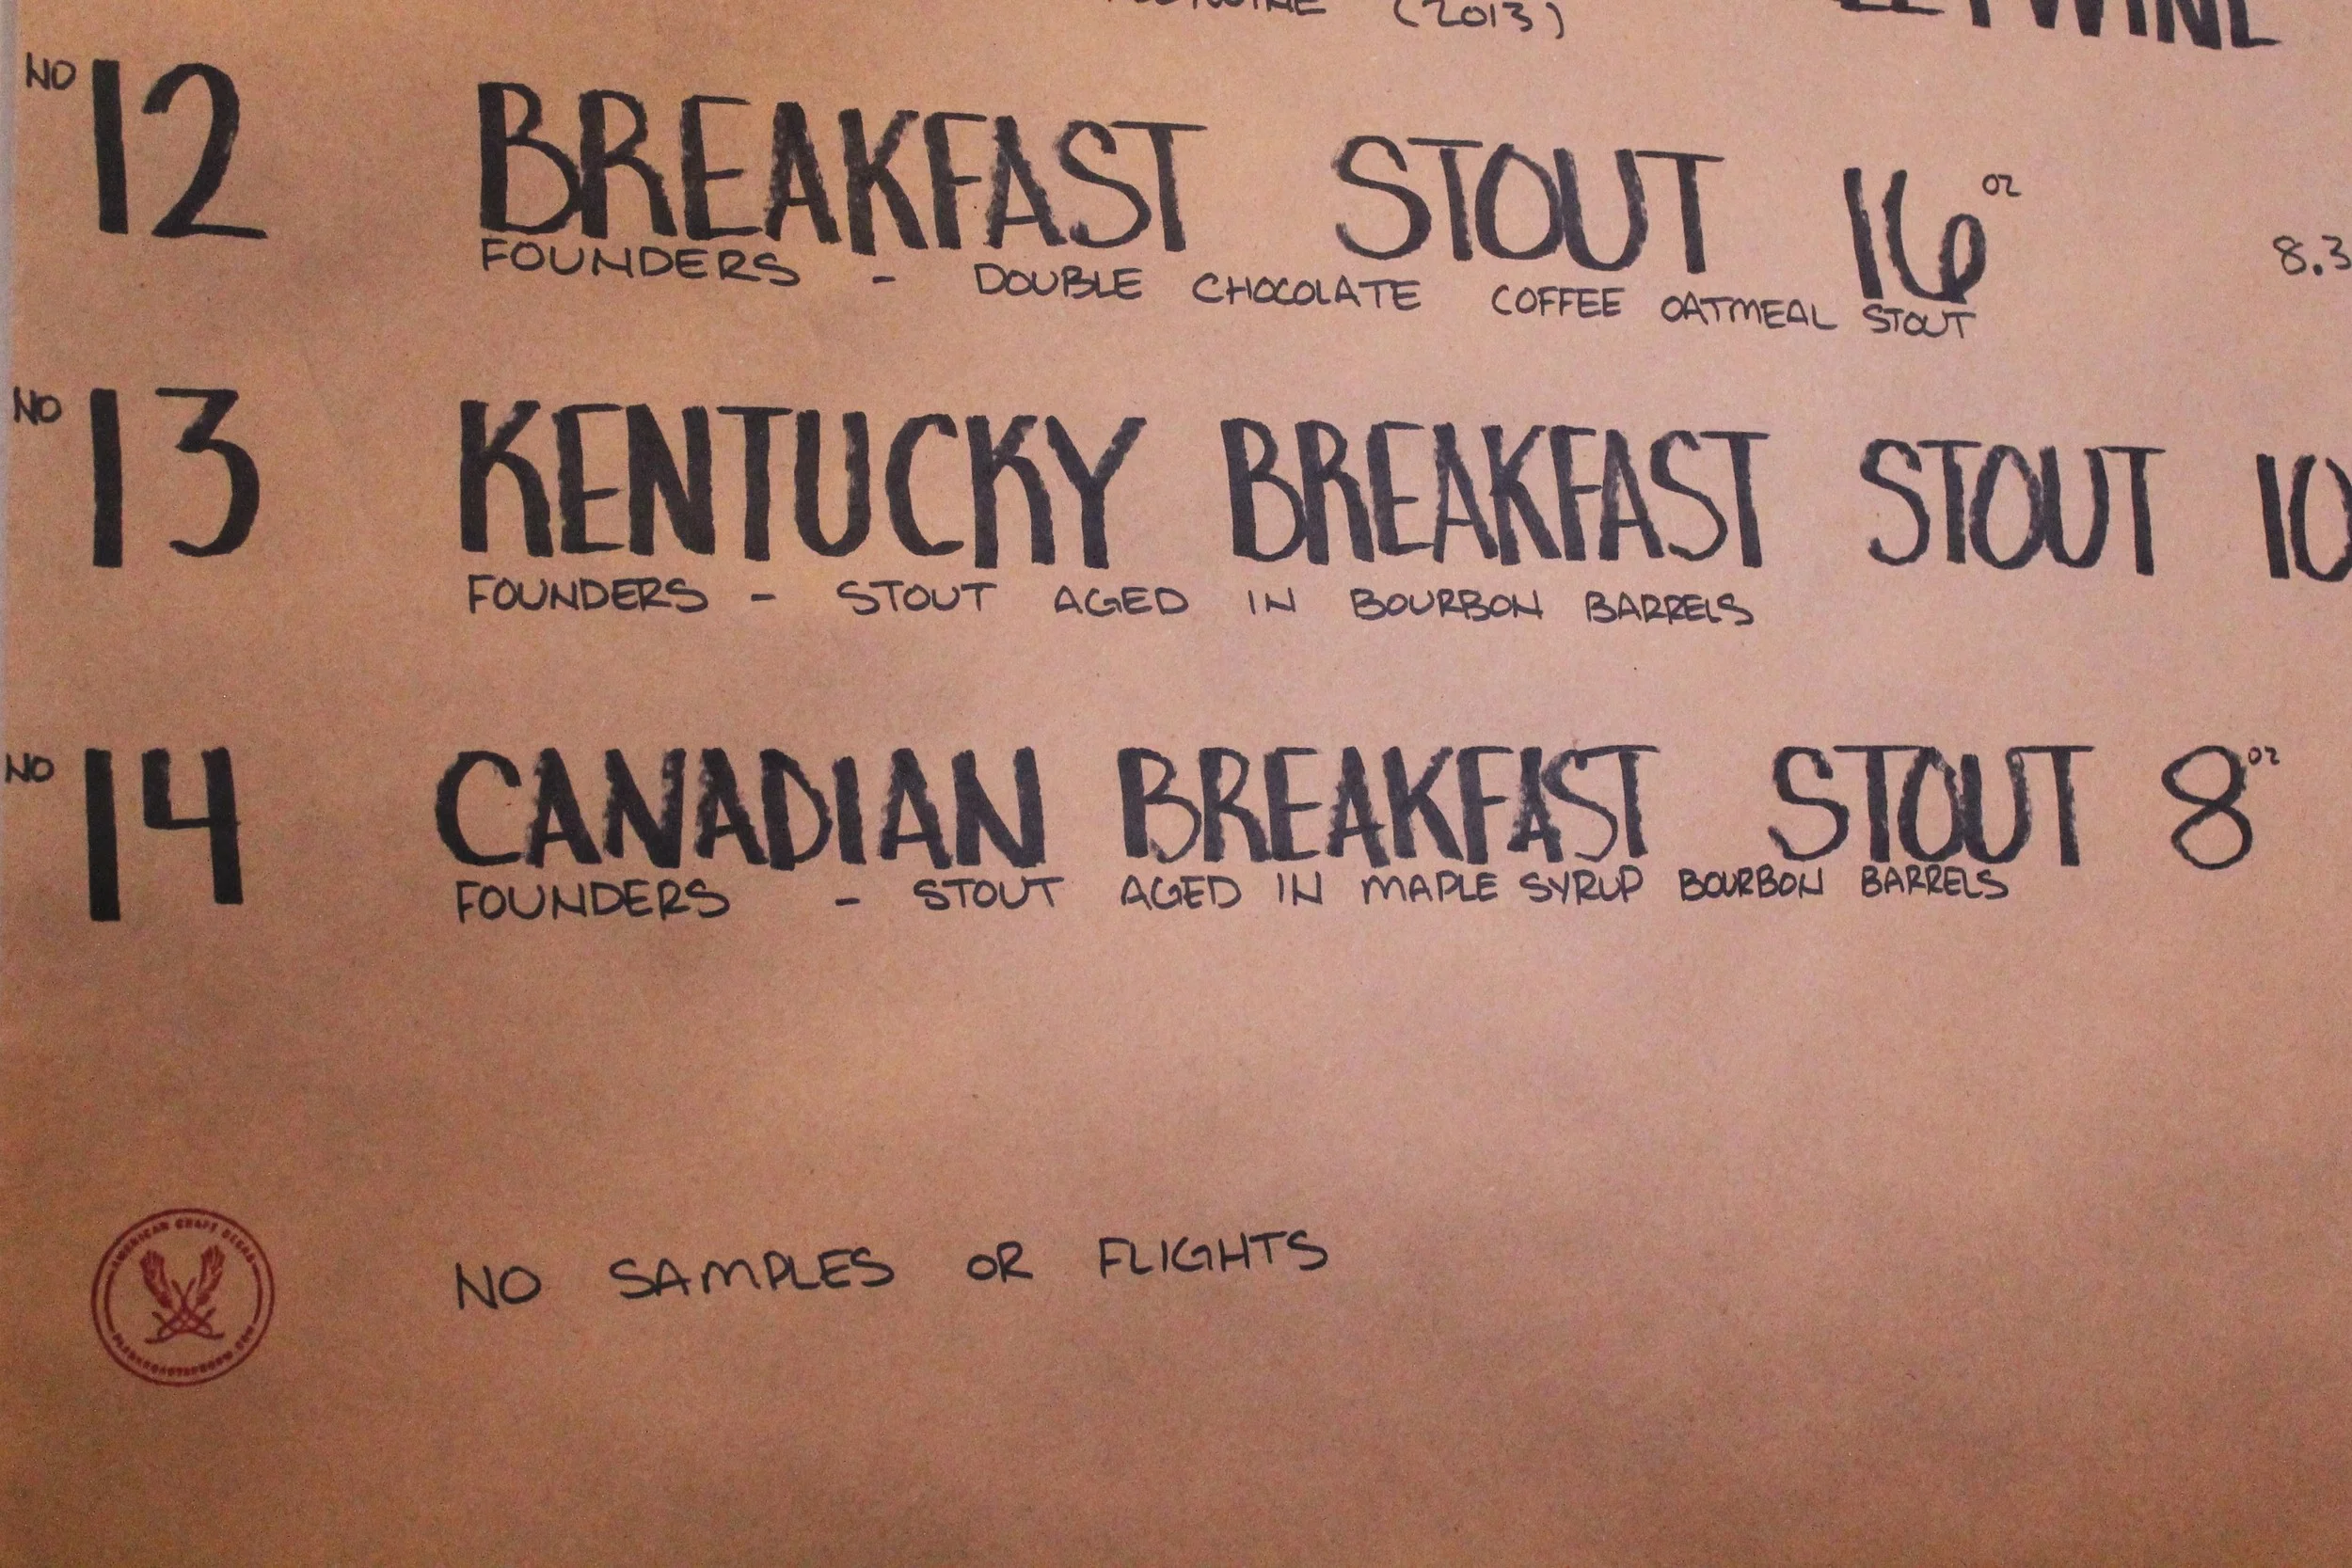 (2013)
NO 12 BREAKFAST STOUT 16 OZ
8.3
FOUNDERS - DOUBLE CHOCOLATE COFFEE OATMEAL STOUT
NO 13 KENTUCKY BREAKFAST STOUT 10
FOUNDERS - STOUT AGED IN BOURBON BARRELS
NO 14 CANADIAN BREAKFAST STOUT 8 OZ
FOUNDERS - STOUT AGED IN MAPLE SYRUP BOURBON BARRELS
AMERICAN CRAFT BEERS
NO SAMPLES OR FLIGHTS